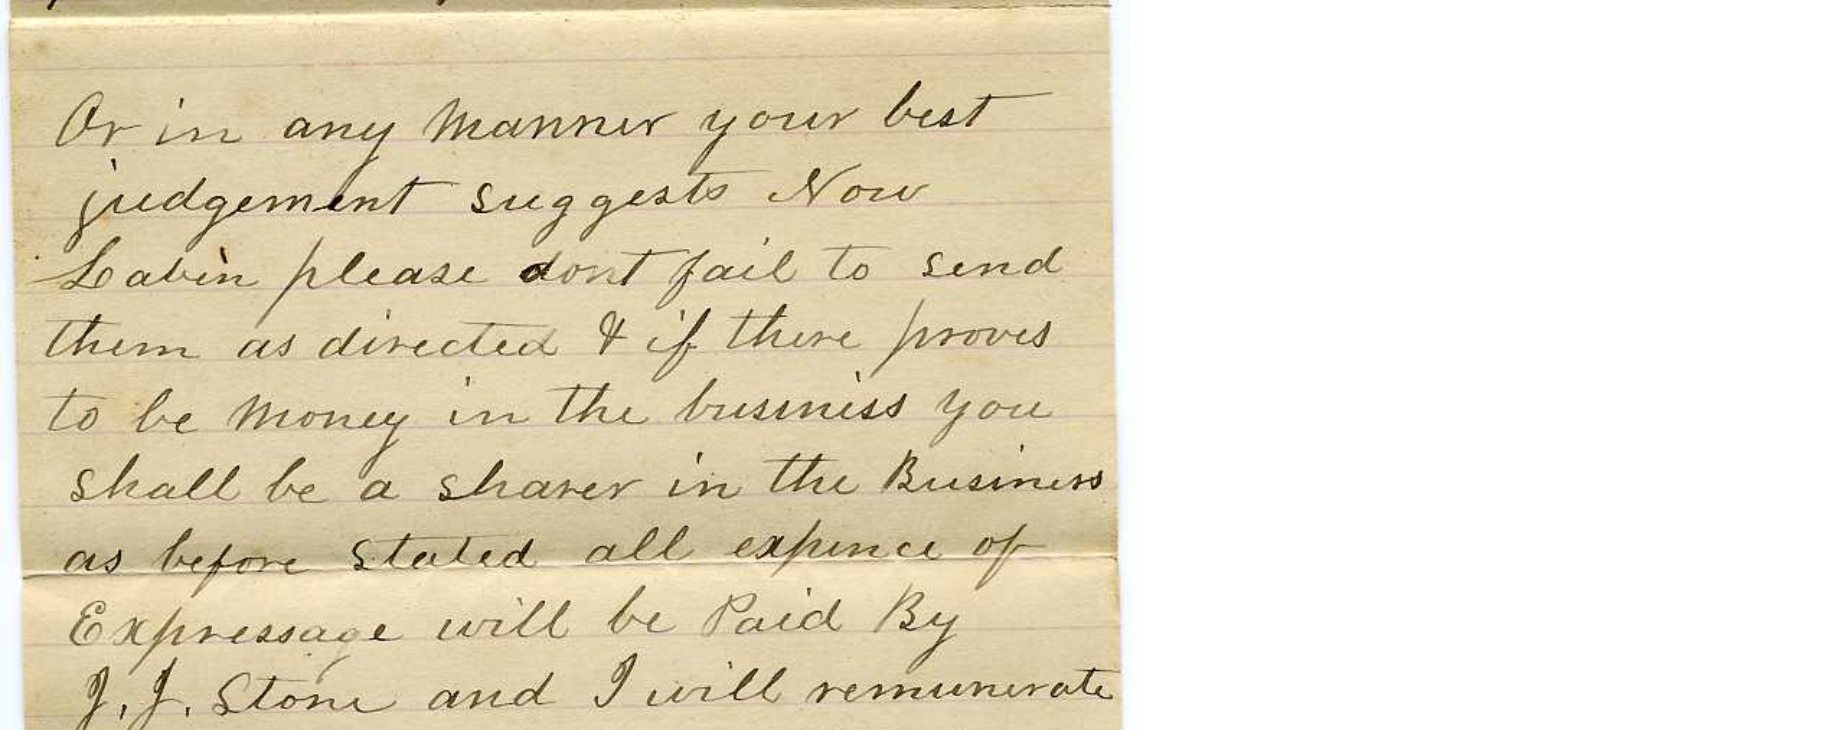 Or in any manner your best
judgement suggests Now
Labin please dont fail to send
them as directed & if there proves
to be money in the business you
shall be a sharer in the Business
as before stated all expence of
Expressage will be Paid By
J. J. Stone and I will remunerate